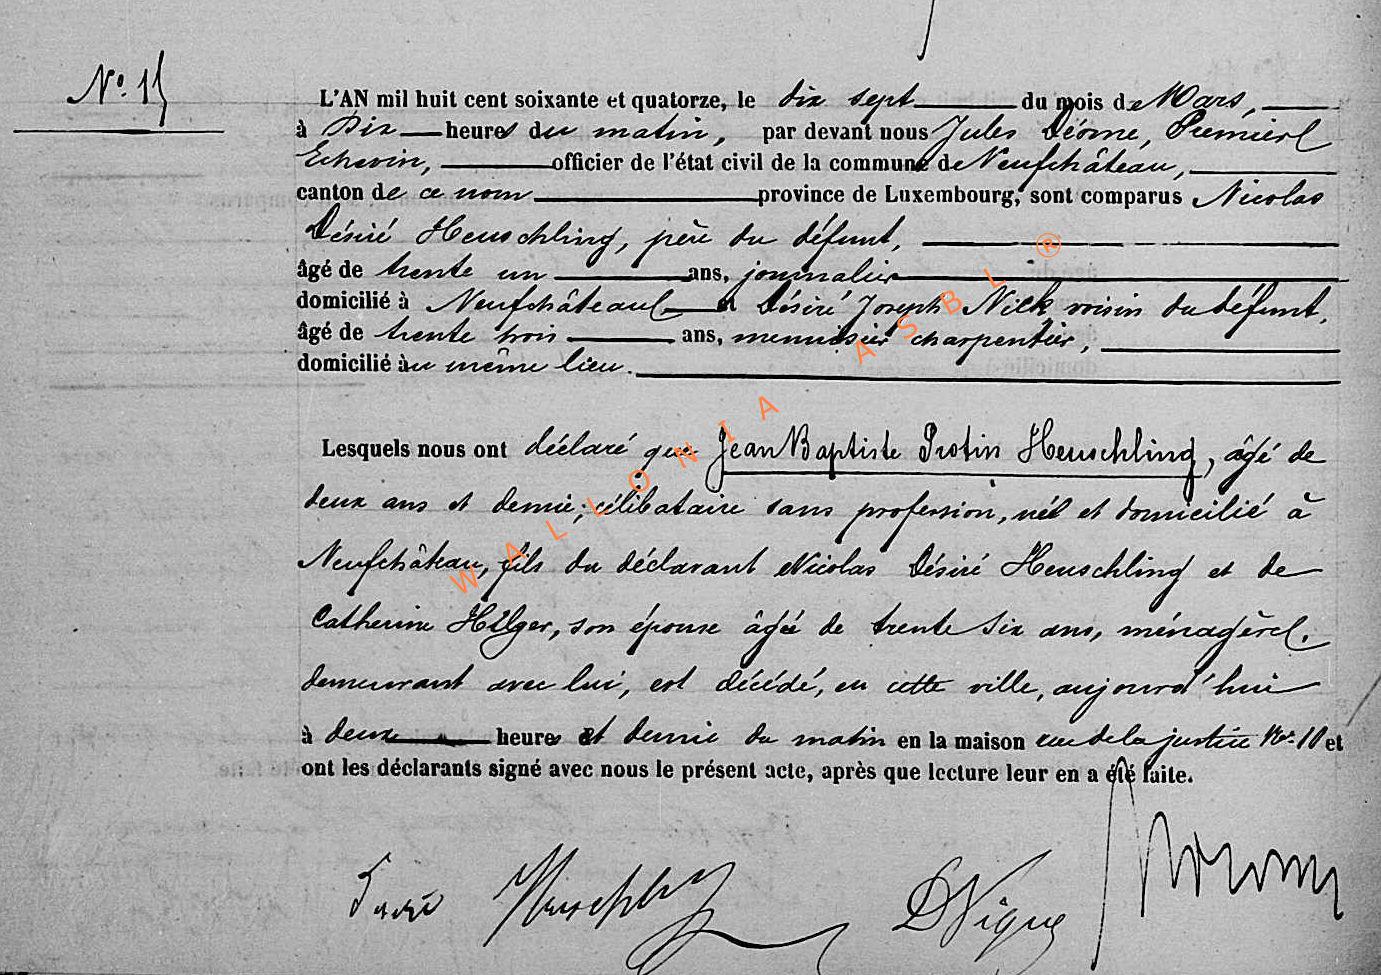 N° 15
L'AN mil huit cent soixante et quatorze, le dix sept du mois de Mars,
à Six heures du matin, par devant nous Jules Déome, Premier
Echevin, officier de l'état civil de la commune de Neufchâteau,
canton de ce nom province de Luxembourg, sont comparus Nicolas
Désiré Heuschling, père du défunt,
âgé de trente un ans, journalier
domicilié à Neufchâteau et Désiré Joseph voisin du défunt,
âgé de trente trois ans, menuisier charpentier,
domicilié au même lieu.
Lesquels nous ont déclaré que Jean Baptiste Protin Heuschling, âgé de
deux ans et demie, célibataire sans profession, né et domicilié à
Neufchâteau, fils du déclarant Nicolas Désiré Heuschling et de
Catherine Hilger, son épouse âgée de trente six ans, ménagère.
demeurant avec lui, est décédé, en cette ville, aujourd'hui
à deux heures et demie du matin en la maison rue de la justice N°. 10 et
ont les déclarants signé avec nous le présent acte, après que lecture leur en a été faite.
WALLONIA ASBL ®